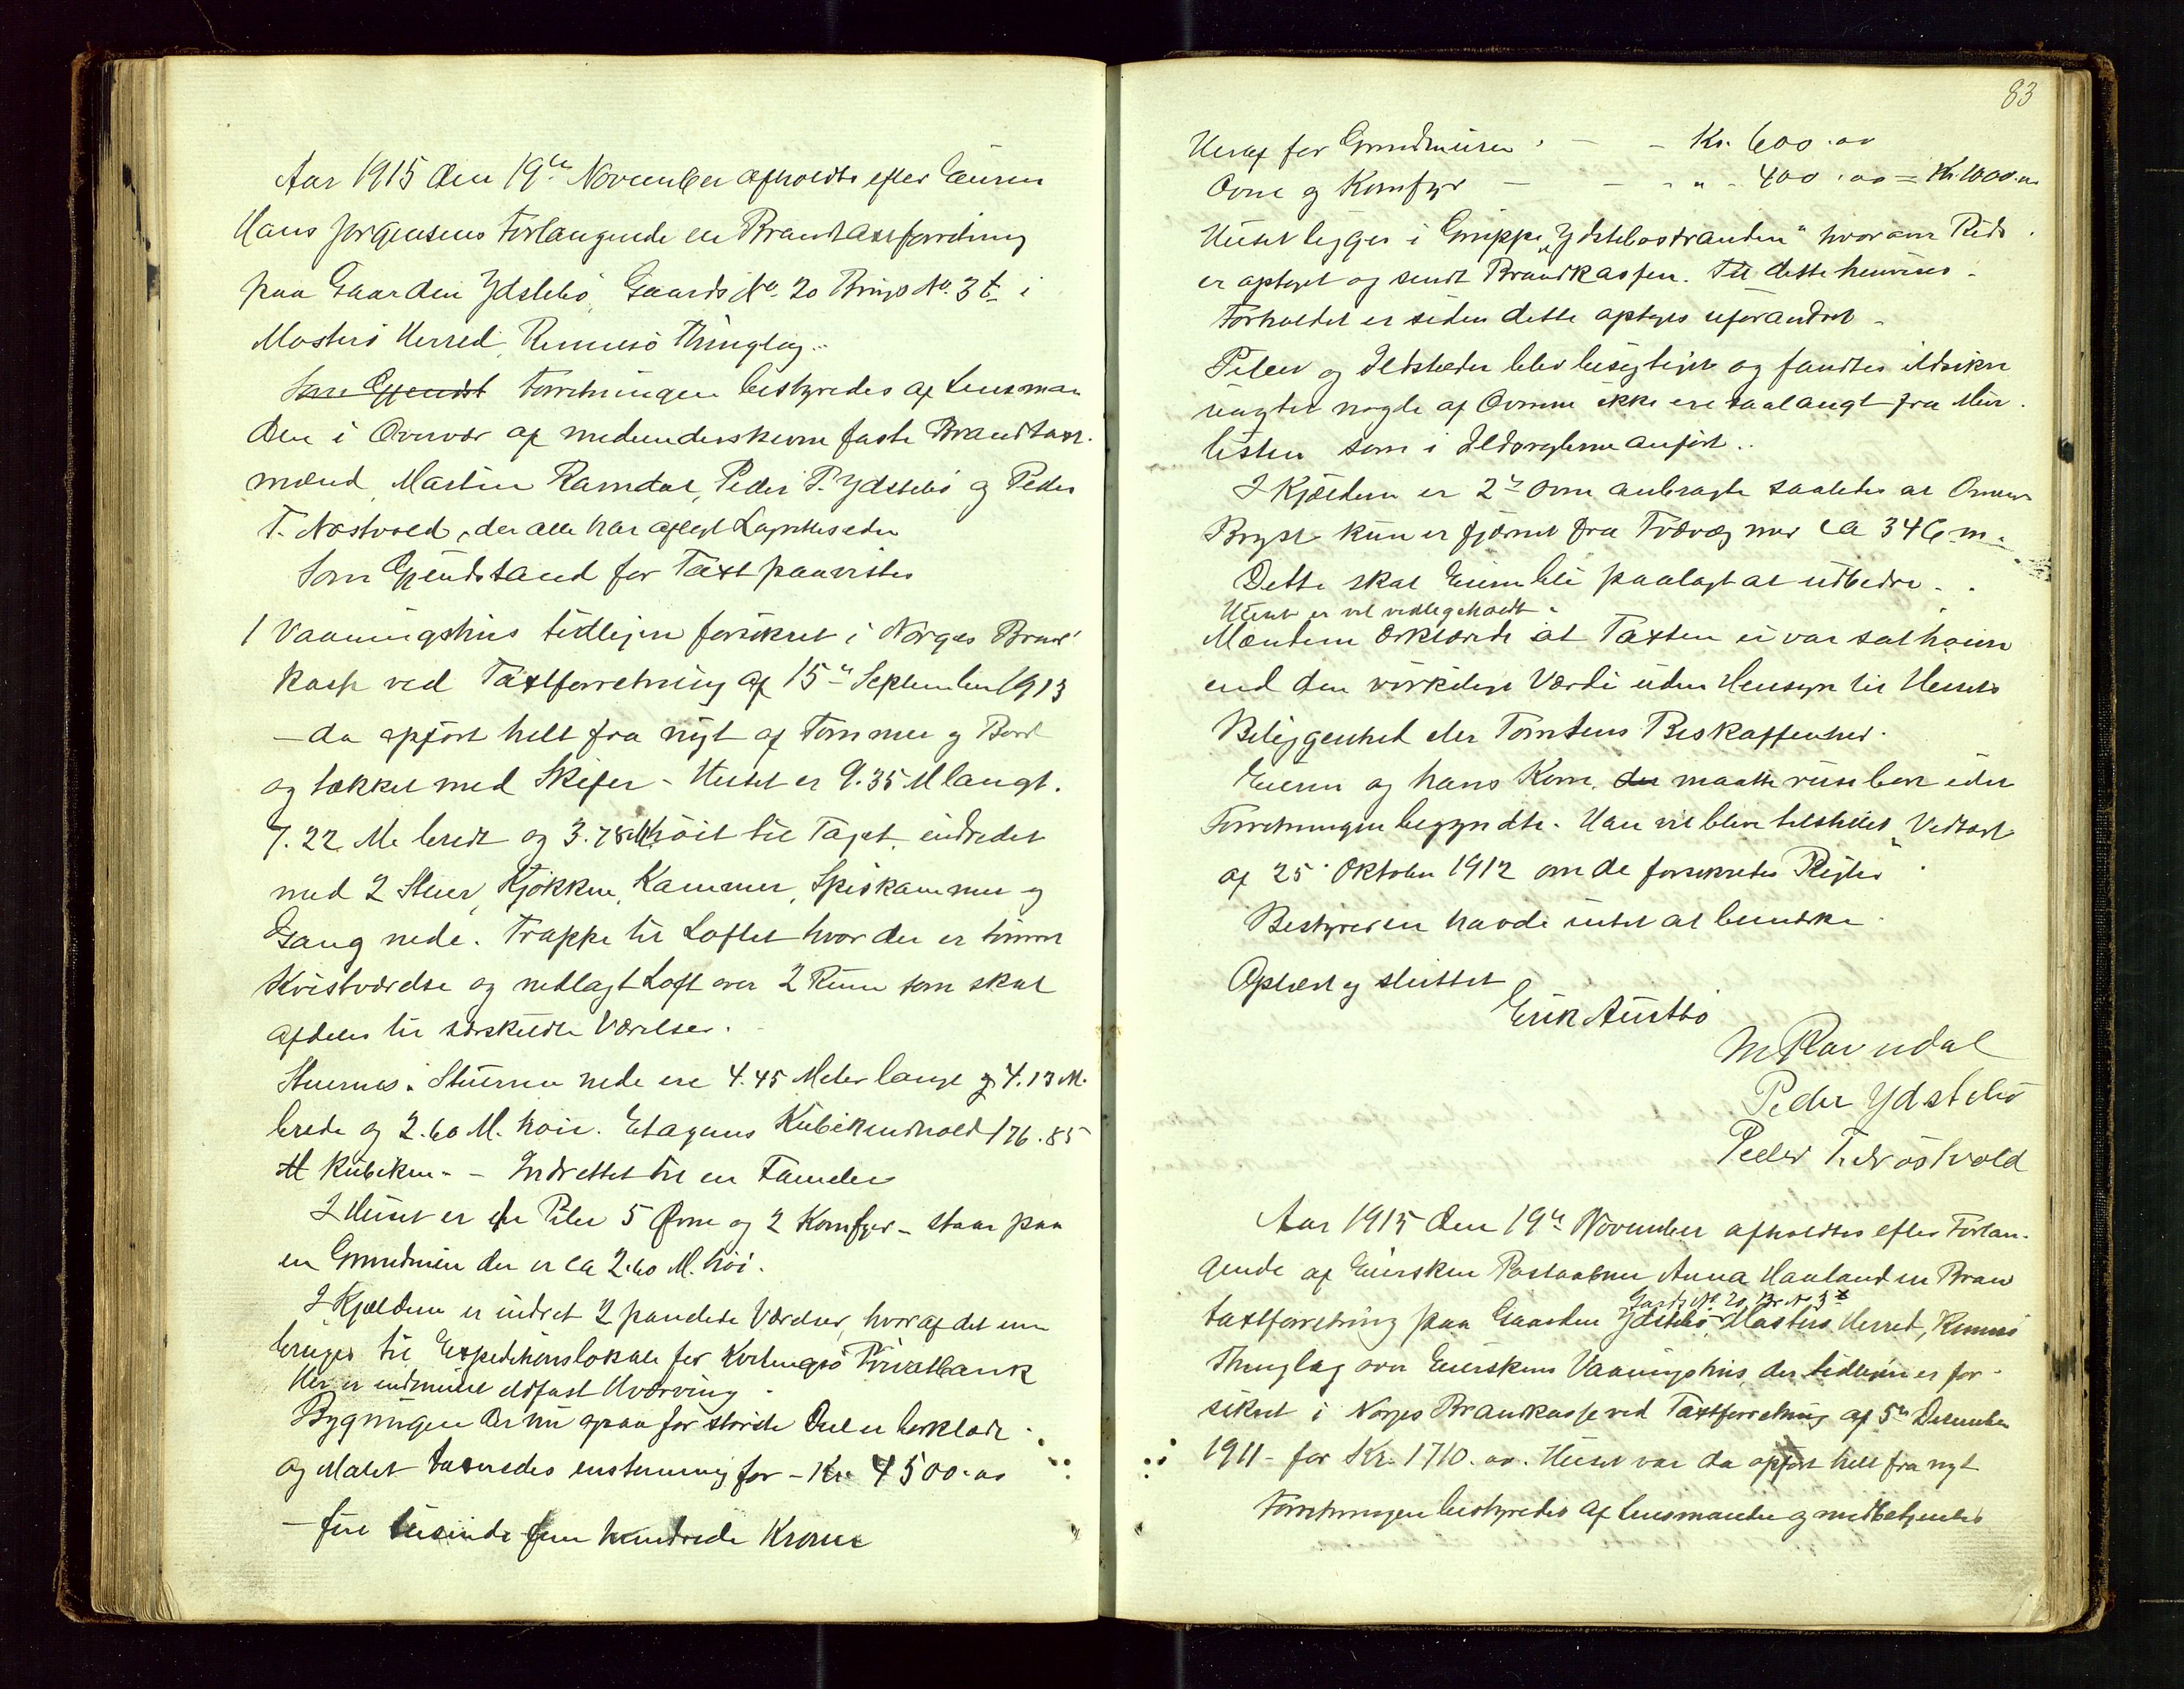 Aar 1915 den 19de November afholdtes efter Eieren
Hans Jørgensens Forlangende en Brandtaxtforretning
paa Gaarden Ydstebø, Gaards No. 20 Brugs No. 3 t. i
Mosterø Herred, Rennesø Thinglag.
Som Gjendst Forretningen bestyredes af Lensman
den i Overvær af medunderskrevne faste Brandtaxt-
mænd, Martin Ramdal, Peder P. Ydstebø og Peder
T. Nøstvold, der alle har aflagt Lagretteseden
Som Gjenstand for Taxt paavistes
1 Vaaningshus tidligere forsikret i Norges Brand-
kasse ved Taxtforretning af 15de September 1913
- da opført helt fra nyt af Tømmer og Bord
og tækket med Skifer - Huset er 9.35 M langt.
7.22 M. bredt og 3.78 M høit til Taget, indredet
med 2 Stuer, Kjøkken, Kammer, Spiskammer og
Gang nede. Trappe til Loftet hvor der er
Kvistværelse og nedlagt Loft over 2 Rum som skal
afdeles til særskildte Værelser.
Stuernes. Stuerne nede ere 4.45 Meter lange og 4.13 M.
brede og 2.60 M. høie. Etagens Kubikindhold 176.85
M Kubiken - - Indrettet til en Familie
I Huset er en Piber 5 Ovne og 2 Komfyr - staar paa
en Grundmur der er ca 2.60 M. høi.
I Kjælderen er indret 2 panelede Værelser, hvoraf det ene
bruges til Expeditionslokale for Privatbank
Her er indmuret ildfast Hvælving
Bygningen der nu ogsaa for største Del er bordklædt
og Malet taxeredes enstemmig for - Kr. 4500.00
- fire tusinde fem hundrede Kroner
83
Heraf for Grundmuren - - Kr. 600.00
Ovne og Komfyr - - - " - 400.00 = Kr. 1000.00
Huset ligger i Gruppe "Ydstebøstranden" hvorom Rids
er optaget og sendt Brandkassen. Til dette henvises.
Forholdet er siden dette optoges uforandret -
Piber og Ildsteder blev besigtiget og fandtes ildsikre
uagtet nogle af Ovnene ikke ere saalangt fra Mur
listen som i Ildsreglerne anført.
I Kjælderen er 2de Ovne anbragte saaledes at Ovnens
Bryst kun er fjernet fra Trævæg med ca 34 Cm.
Dette skal Eieren bli paalagt at udbedre.
Huset er vel vedligeholdt.
Mændene erklærede at Taxten ei var sat høiere
end den virkelige Værdi uden Hensyn til Husets
Beliggenhed eller Tomtens Beskaffenhed.
Eieren og hans Kone, der maatte reise bort inden
Forretningen begyndte. Han vil blive tilstillet "Vedtæt
af 25 Oktober 1912 om de forsikredes Pligter"
Bestyreren havde intet at bemærke
Oplæst og sluttet
Erik Austbø
M Ramdal
Peder Ydstebø
Peder T. Nøstvold
Aar 1915 den 19de November afholdtes efter Forlan-
gende af Eiersken Postaabner Anna Haaland en Brand
Gards No 20 Br No 3
taxtforretning paa Gaarden Ydstebø, Mosterø Herred, Rennesø
Thinglag over Eierskens Vaaningshus, der tidligere er for-
sikret i Norges Brandkasse ved Taxtforretning af 5te December
1911 - for Kr. 1710.00. Huset var da opført helt fra nyt
Forretningen bestyredes af Lensmanden og medbetjentes